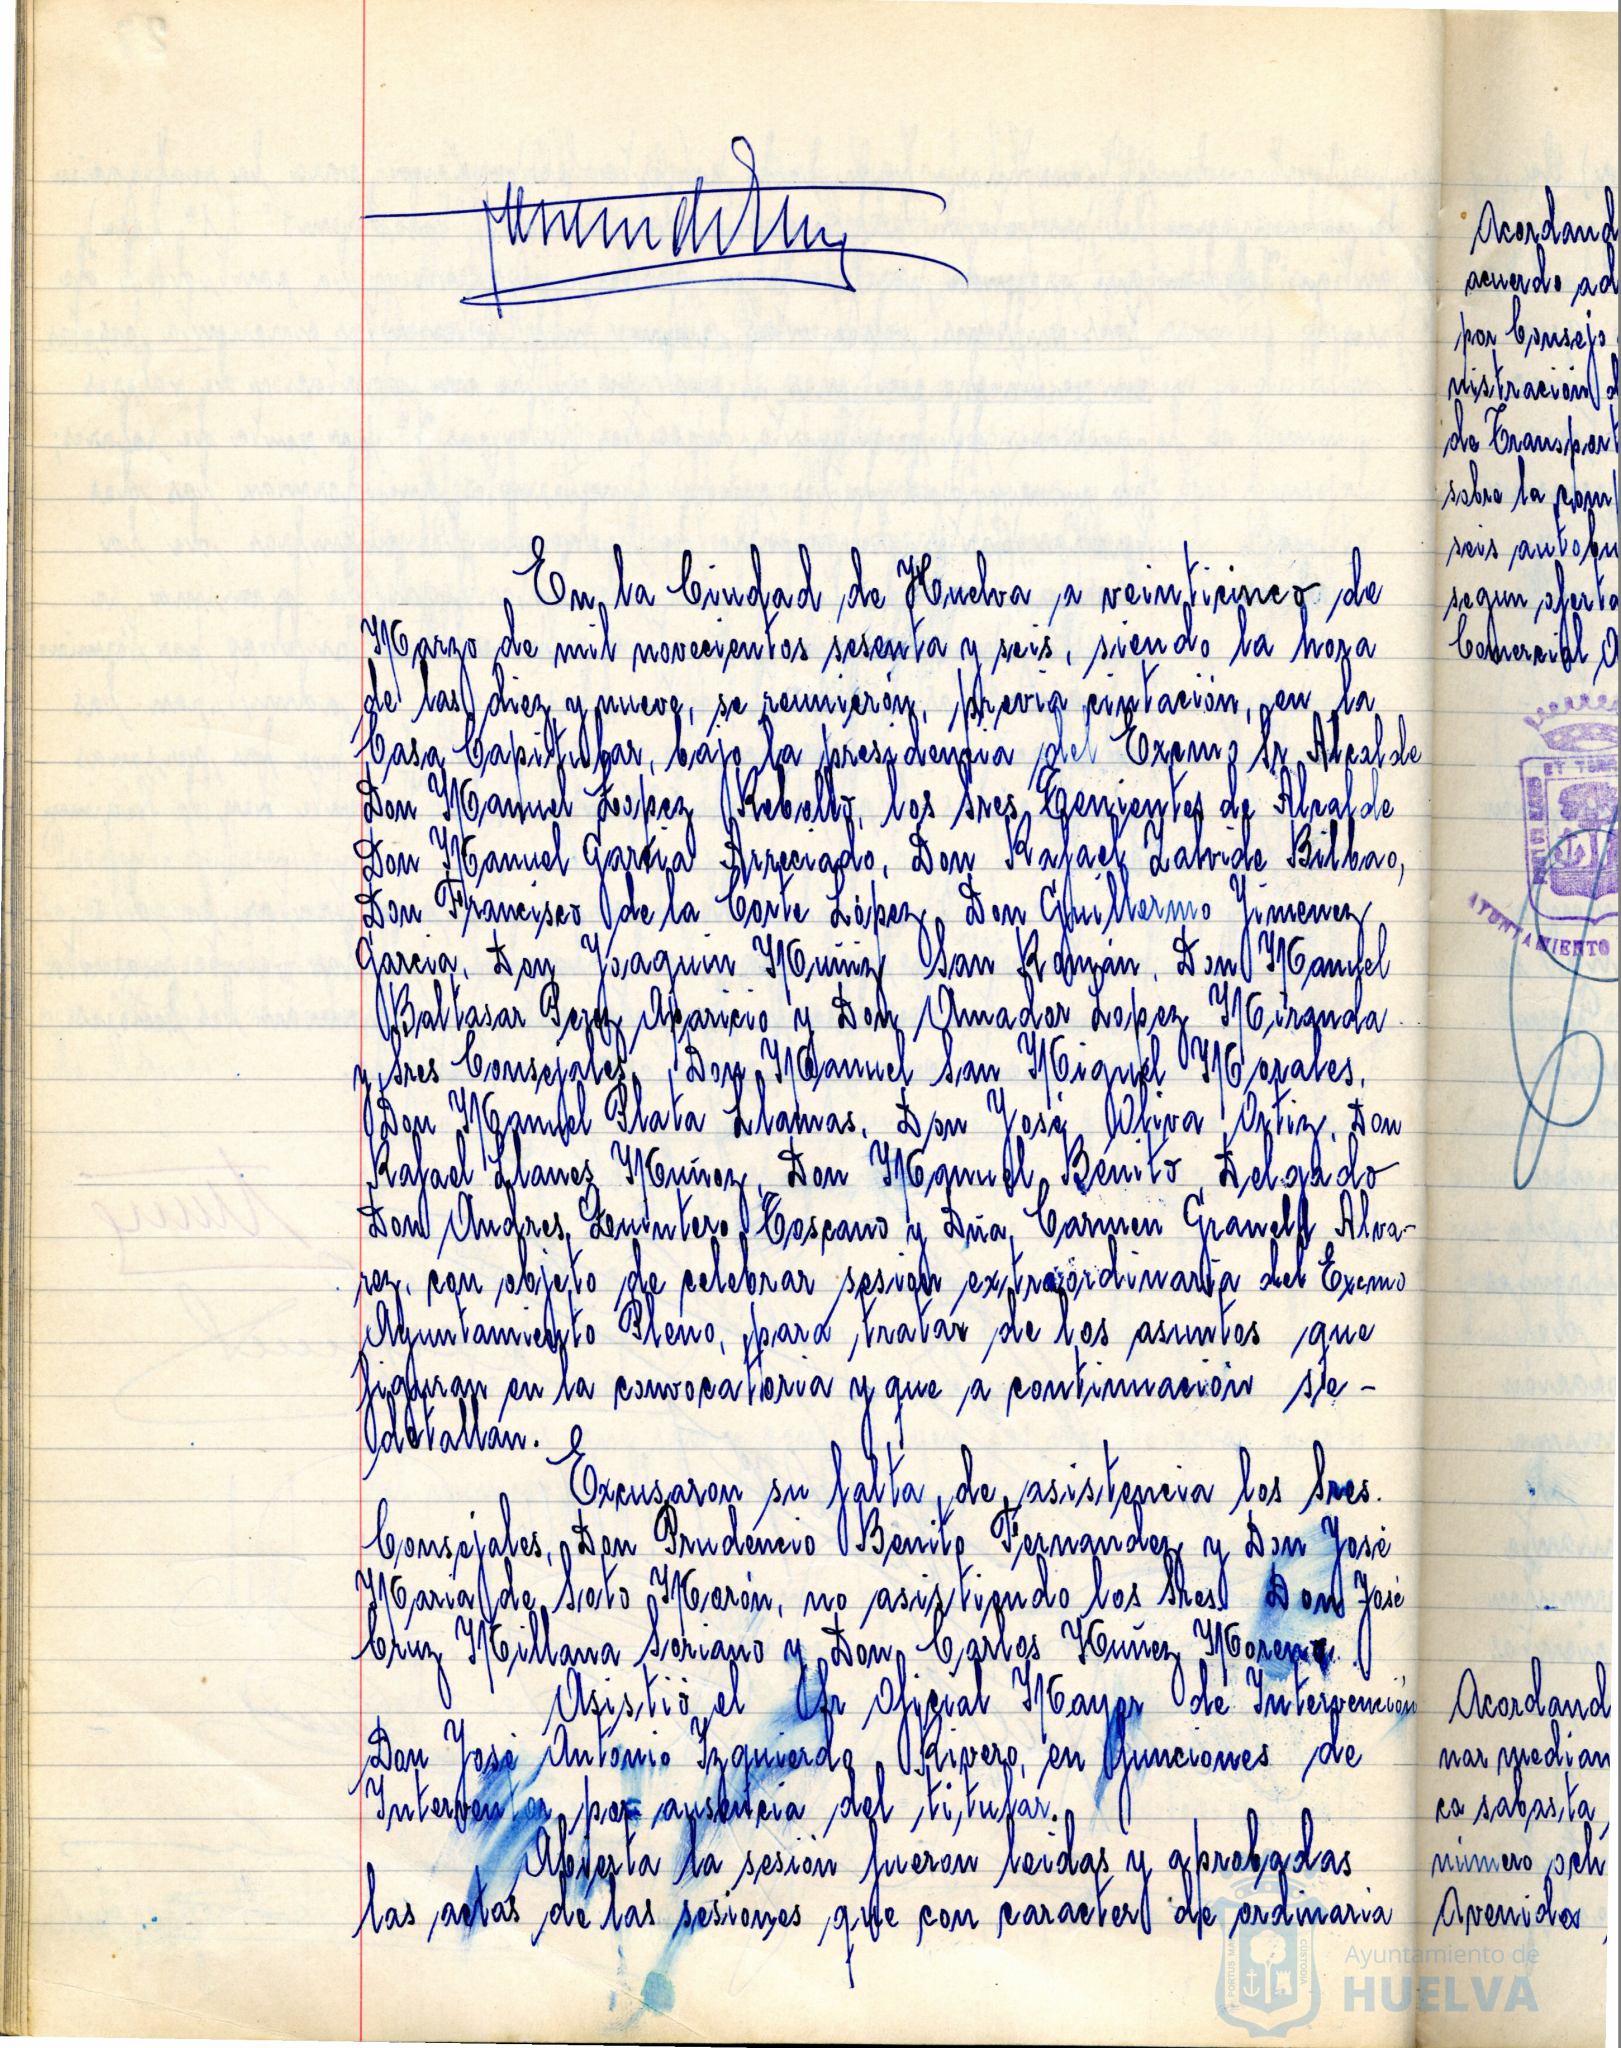 En la Ciudad de Huelva a veinticinco de
Marzo de mil novecientos sesenta y seis, siendo la hora
de las diez y nueve, se reunierón, previa cintación, en la
Casa Capitular, bajo la presidencia del Excmo Sr Alcalde
Don Manuel López Rebollo, los Sres Tenientes de Alcalde
Don Manuel García Arreciado, Don Rafael Zalvide Bilbao,
Don Francisco de la Corte López, Don Guillermo Jimenez
García, Don Joaquin Muñiz San Román, Don Manuel
Baltasar Perez Aparicio y Don Amador Lopez Miranda
y Sres Consejales, Don Manuel San Miguel Morales,
Don Manuel Plata Llamas, Don José Oliva Ortiz, Don
Rafael Llanes Muñoz, Don Manuel Benito Delgado
Don Andres Quintero Toscano y Dña, Carmen Granell Alva-
rez, con objeto de celebrar sesion extraordinaria del Excmo
Ayuntamiento Pleno, para tratar de los asuntos que
figuran en la convocatoria y que a continuación se-
detallan.
Excusaron su falta de asistencia los Sres.
Consejales, Don Prudencio Benito Fernandez y Don José
Maria de Soto Morón, no asistiendo los Sres Don José
Cruz Millana Soriano y Don Carlos Nuñez Moreno.
Asistió el Sr Oficial Mayor de Intervención
Don José Antonio Izquierdo Rivero, en funciones de
Interventor por ausencia del titular.
Abierta la sesión fueron leidas y aprobadas
las actas de las sesiones que con caracter de ordinaria
Acordand
acuerdo ad
por Consejo
nistración d
de Transport
sobre la com
seis autobu
segun oferta
Comercial
AYUNTAMIENTO
Acordand
nar median
ca sabasta
número och
Avenida
PORTUS MA
CUSTODIA
Ayuntamiento de
HUELVA